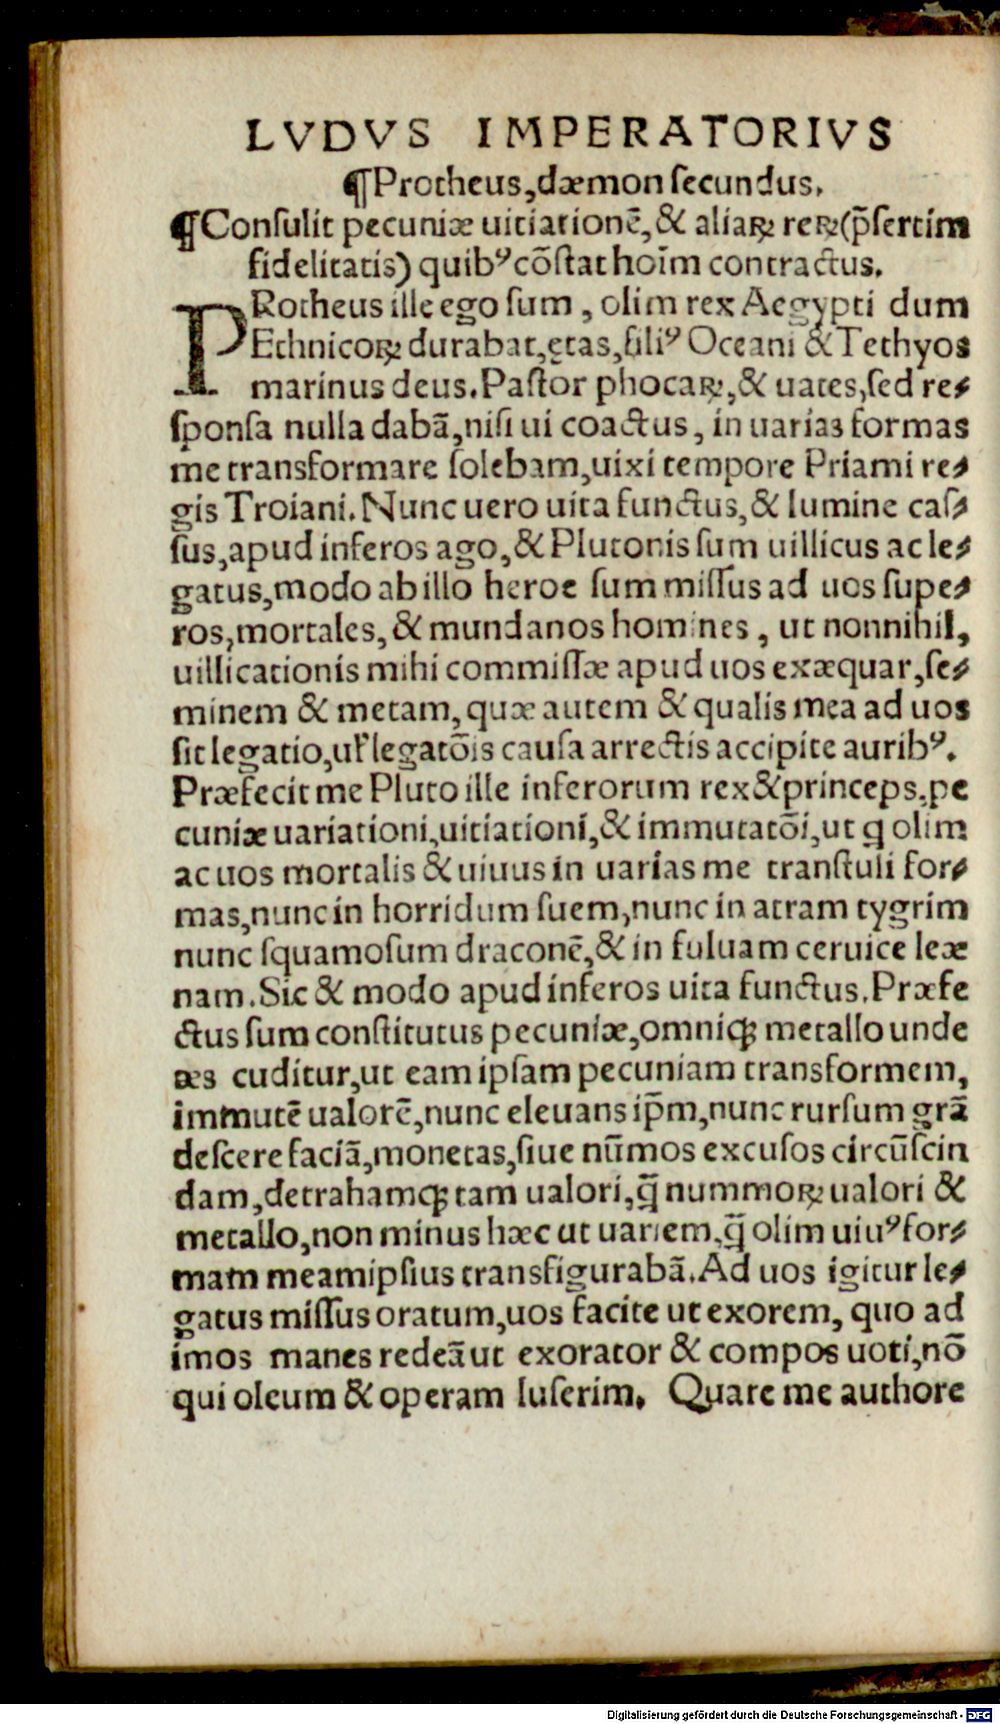 LVDVS IMPERATORIVS
¶Protheus,dæmon ſecundus.
¶Conſulit pecuniæ uitiationē,& aliaꝝ reꝝ(p̄ſertim
fidelitatis) quibꝰ cōſtat hoīm contractus.
PRotheus ille ego ſum , olim rex Aegypti dum
Ethnicoꝝ durabat,ętas,filiꝰ Oceani & Tethyos
marinus deus.Paſtor phocaꝝ,& uates,ſed re⸗
ſponſa nulla dabā,niſi ui coactus, in uarias formas
me transformare ſolebam,uixi tempore Priami re⸗
gis Troiani.Nunc uero uita functus,& lumine caſ⸗
ſus,apud inferos ago,& Plutonis ſum uillicus ac le⸗
gatus,modo ab illo heroe ſum miſſus ad uos ſupe⸗
ros,mortales, & mundanos homines , ut nonnihil,
uillicationis mihi commiſſæ apud uos exæquar,ſe⸗
minem & metam, quæ autem & qualis mea ad uos
ſit legatio,uꝉ legatōis cauſa arrectis accipite auribꝰ.
Præfecit me Pluto ille inferorum rex & princeps,pe
cuniæ uariationi,uitiationi,& immutatōi,ut ꝗ olim
ac uos mortalis & uiuus in uarias me tranſtuli for⸗
mas,nunc in horridum ſuem,nunc in atram tygrim
nunc ſquamoſum draconē,& in fuluam ceruice leæ
nam.Sic & modo apud inferos uita functus.Præfe
ctus ſum conſtitutus pecuniæ,omniꝗ; metallo unde
æs cuditur,ut eam ipſam pecuniam transformem,
immutē ualorē,nunc eleuans ip̄m,nunc rurſum grā
deſcere faciā,monetas,ſiue nūmos excuſos circūſcin
dam,detrahamꝗ; tam ualori,ꝗ̄ nummoꝝ ualori &
metallo,non minus hæc ut uariem,ꝗ̄ olim uiuꝰ for⸗
mam meam ipſius transfigurabā.Ad uos igitur le⸗
gatus miſſus oratum,uos facite ut exorem, quo ad
imos manes redeā ut exorator & compos uoti,nō
qui oleum & operam luſerim. Quare me authore
Digitalisierung gefördert durch die Deutsche Forschungsgemeinschaft - DFG